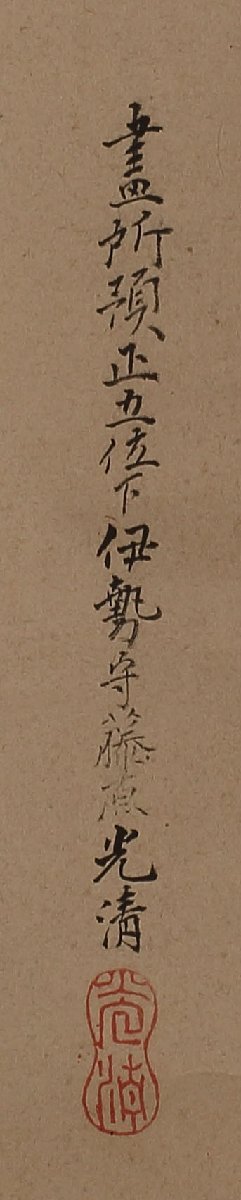 畫所預正五位下伊勢守藤原光清
光清